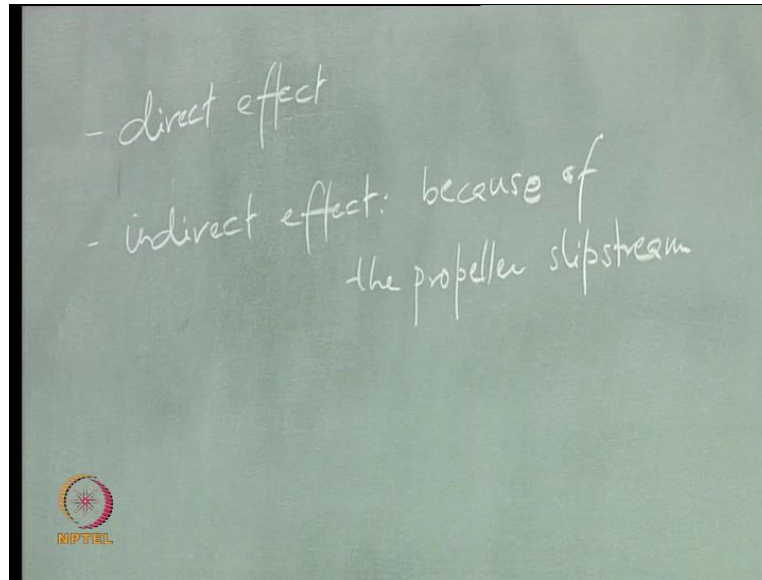 - direct effect
- indirect effect: because of
the propeller slipstream
NPTEL